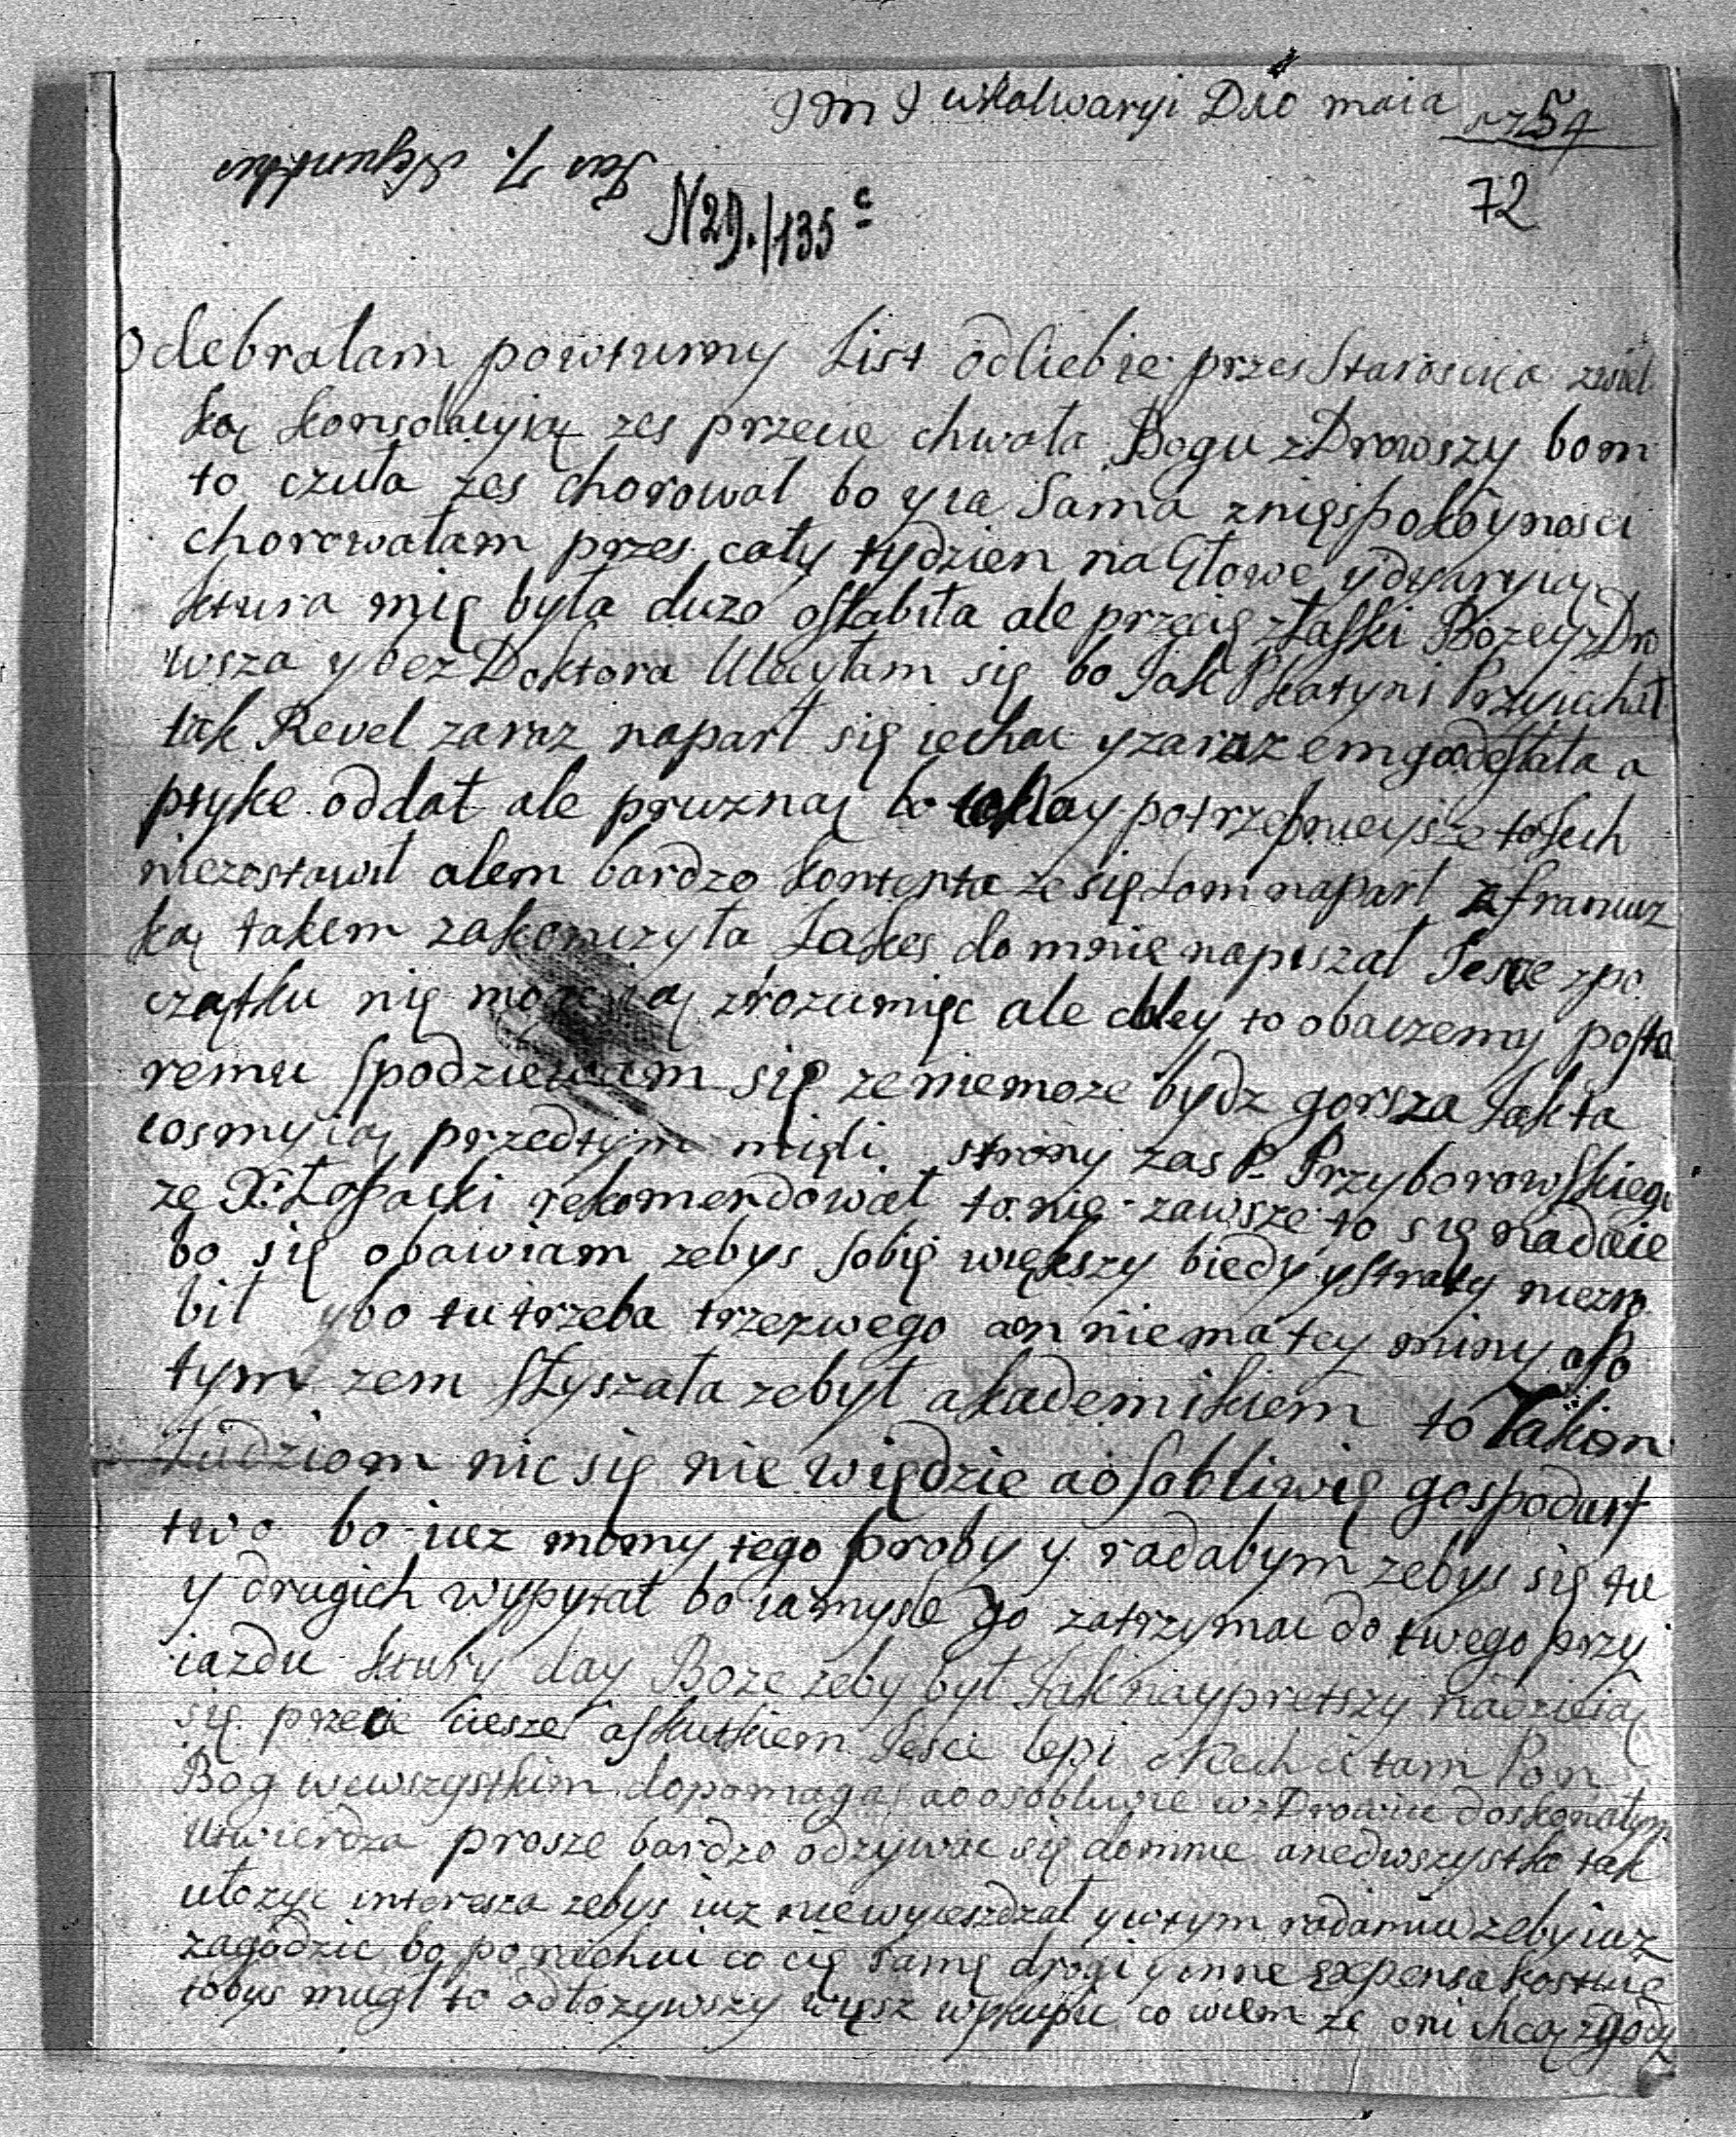 J M J wKalwaryi D10 maia 1754
72
N29./135c
Odebrałam powturny List odCiebie przes Staroscica zwiel
ką konsolacyią zes przecie chwała Bogu zDrowszy bom
to czuła zes chorował bo y ia Sama znięspokoynosci
chorowałam przes cały tydzien na Głowe y dyaryią
ktura mię była duzo osłabiła ale przecię złaski Bozey zDro
wsza y bez Doktora Uleczyłam się bo Jak Przyiachał
tak Revel zaraz naparł się iechac y zarazem go odesłała a
ptyke oddał ale pruzną bo potrzebnieysze
niezostawił alem bardzo kontenta ze się Lom naparł zfrancuz
ką takem zakonczyła Jakes do mnie napiszał Jescze zpo
czątku nię zrozumięc ale daley to obaczemy posta
remu spodziewam się ze niemoze bydz gorsza Jak ta
cosmy ią przedtym mięli strony zas P. Przyborowskiego
zę X: Łopacki rękomendował to nię zawsze to się nadaie
bo się obawiam zebys sobię większy biedy y straty niezro
bił y bo tu trzeba trzezwego a on nie ma tey miny a po
tym zem słyszała ze był akademikiem to Takim
Ludziom nic się nie więdzie a osobliwię gospodarst
two bo iuz mamy tego proby y radabym zebys się tu
y drugich wypytał bo ia myslę go zatrzymac do twego przy
iazdu ktury day Boze zeby był Jak nayprętszy nadzieią
się przecie ciesze a skutkiem Jescze lepi Niech ci tam Pan
Bog wewszystkim dopomaga a osobliwie wzDrowiu doskonałym
utwierdza prosze bardzo odzywac się domnie wszystko tak
ułozyc interesza zebys iuz niewyieszdzał y wtym zeby iuz
zagodzic bo poniechui co cię samę drogi y inne expensa kosztuie
tobys mugł to odłozywszy więsz wykupic co wiem ze oni chcą zgody